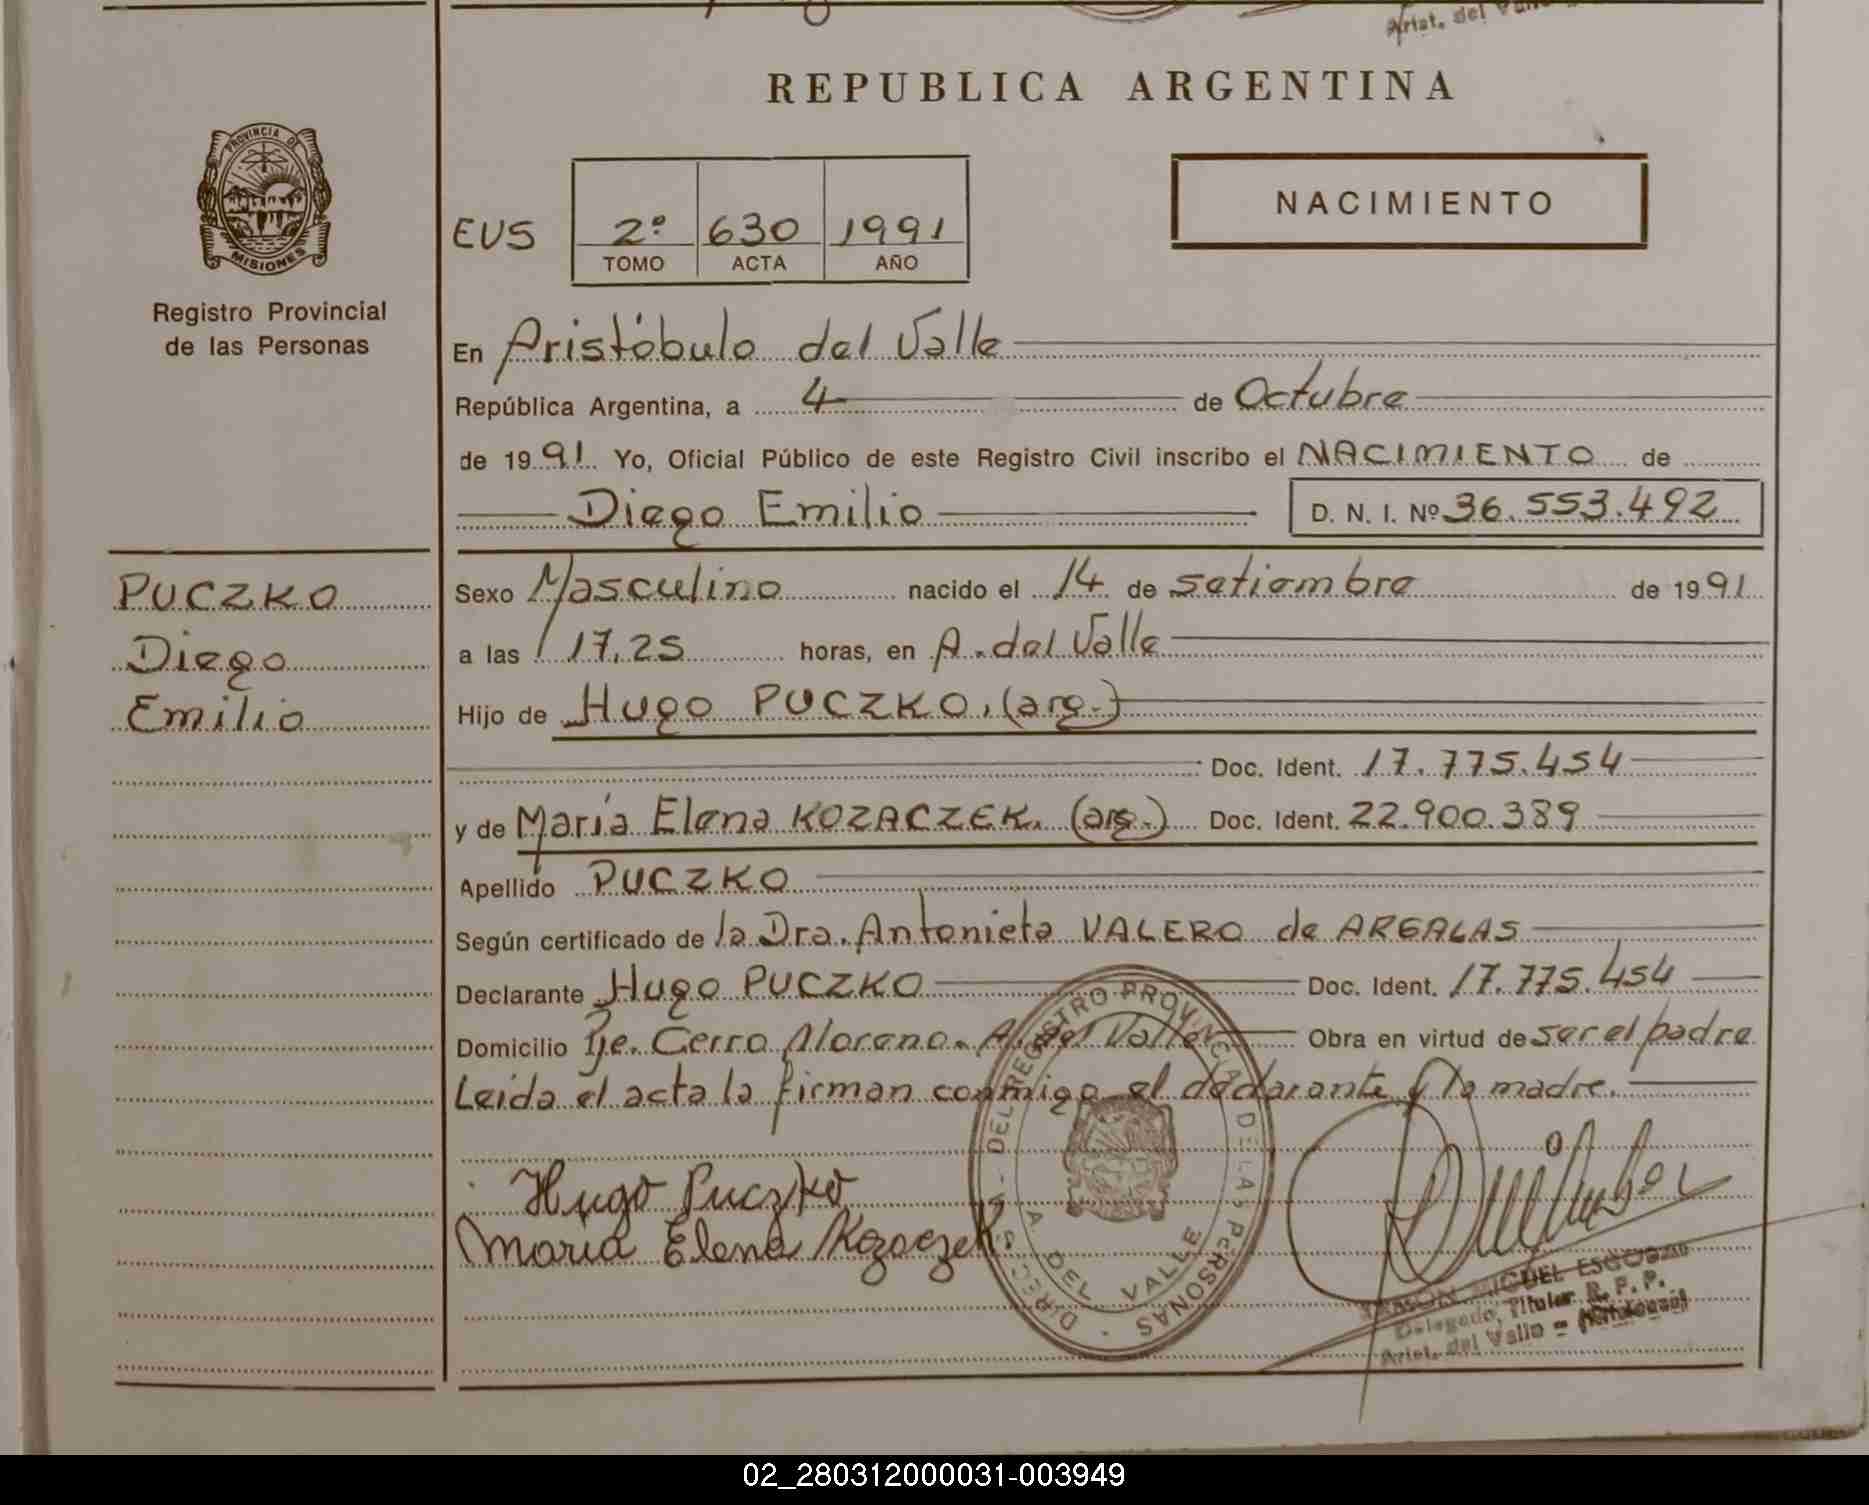 Arist. del Valle
REPUBLICA ARGENTINA
PROVINCIA DE
MISIONES
Registro Provincial
de las Personas
EUS
2º 630 1991
TOMO ACTA AÑO
NACIMIENTO
En Aristóbulo del Valle
República Argentina, a 4 de Octubre
de 1991 Yo, Oficial Público de este Registro Civil inscribo el NACIMIENTO de
Diego Emilio D. N. I. Nº 36.553.492
PUCZKO
Diego
Emilio
Sexo Masculino nacido el 14 de setiembre de 1991
a las 17,25 horas, en A. del Valle
Hijo de Hugo PUCZKO, (arg.)
Doc. Ident. 17.775.454
y de María Elena KOZACZEK. (arg.) Doc. Ident. 22.900.389
Apellido PUCZKO
Según certificado de la Dra. Antonieta VALERO de ARGALAS
Declarante Hugo PUCZKO Doc. Ident. 17.775.454
Domicilio Pje. Cerro Moreno. A. del Valle Obra en virtud de ser el padre
Leida el acta la firman conmigo el declarante y la madre.
Hugo Puczko
Maria Elena Kozaczek.
DIRECC. DEL REGISTRO PROVINCIAL DE LAS PERSONAS
A. DEL VALLE
RAMON MIGUEL ESCOBAR
Delegado Titular R. P. P.
Arist. del Valle - (Misiones)
02_280312000031-003949